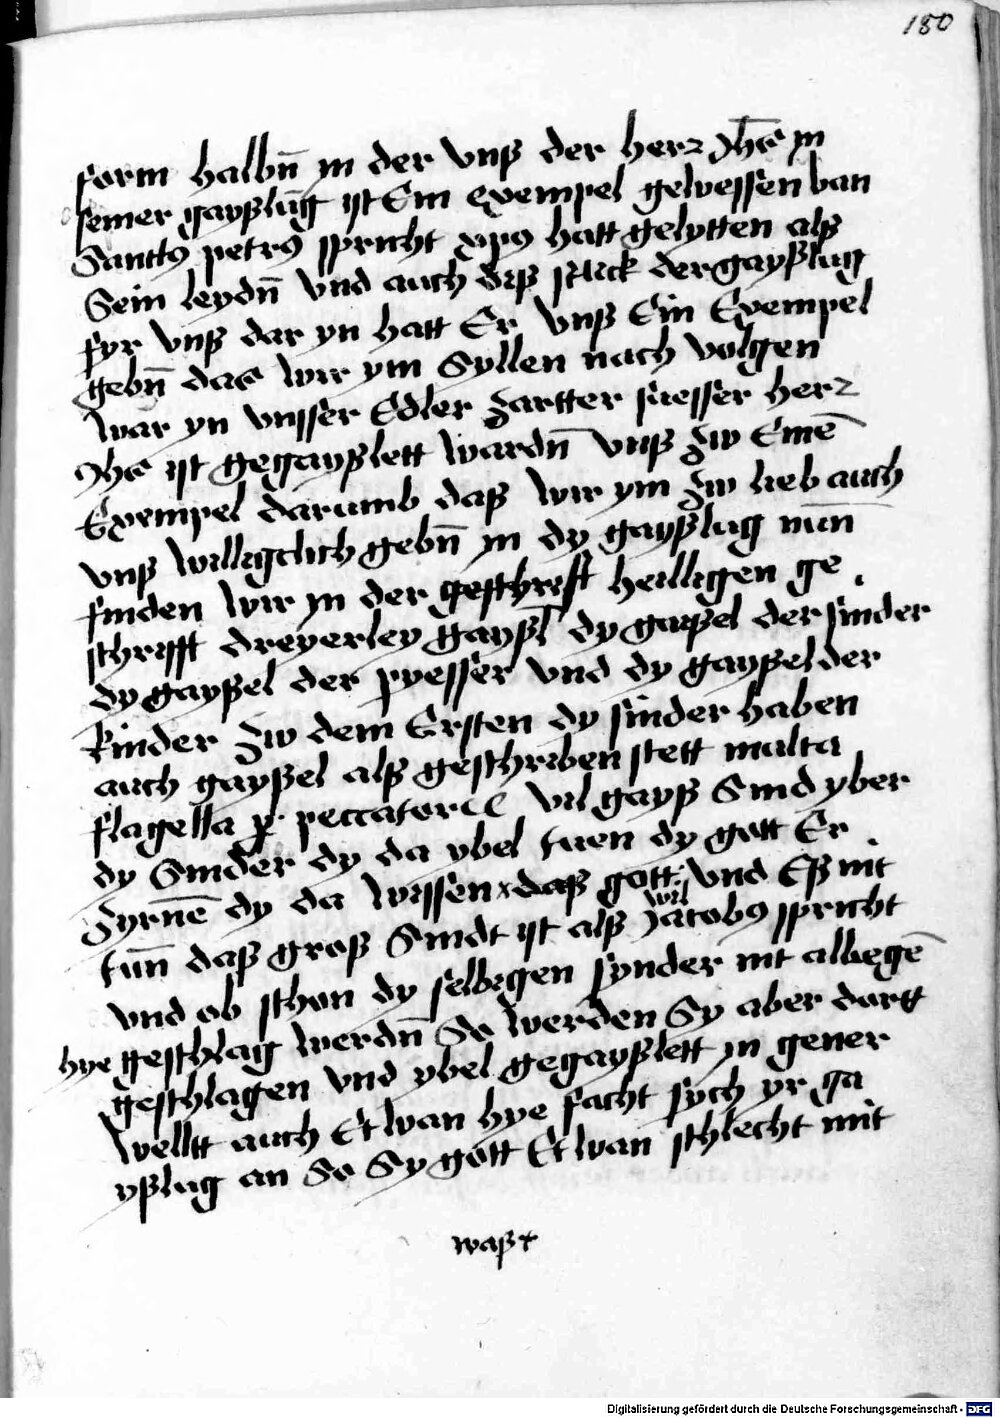 180
form halbn̄ jn der vnß der herr Jh̄s jn
seiner gayßlūg yst Ein exempel gewessen wan
Santtꝰ petrꝰ spricht xp̄s hatt gelytten alß
Sein leydn̄ vnd auch diß stuck der gayßlug
fyr vnß dar yn hatt Er vnß Ein Exempel
gebn̄ das wir ym Syllen nach volgen
war yn vnsser Edler zartter suesser herr
Jhs ist gegayßlett wardn̄ vnß zw Einē
Exempel darumb daß wir ym zw lieb auch
vnß williglich gebn̄ jn dy gayßlug nūn
finden wir jn der geschrift heilligen ge
schrifft dreyerley gayßl dy gaißel der sinder
dy gayßel der pyesser vnd dy gayßel der
kinder zw dem Ersten dy sinder haben
auch gayßel alß geschriben stett multa
flagella p peccatoris vil gayß Sind yber
dy Sinder dy da ybel tuen dy gott Er
zyrnē dy da wissen daß gott wil vnd Eß nit
tūn daß groß Sindt ist alß Jacobꝰ spricht
vnd ob schon dy selbigen synder nit albegē
hye geschlag werdn̄ So werden Sy aber dortt
geschlagen vnd ybel gegayßlett jn gener
welltt auch Etwan hye facht sych yr ga
yßlug an So Sy gott Etwan schlecht mit
waß
Digitalisierung gefördert durch die Deutsche Forschungsgemeinschaft - DFG